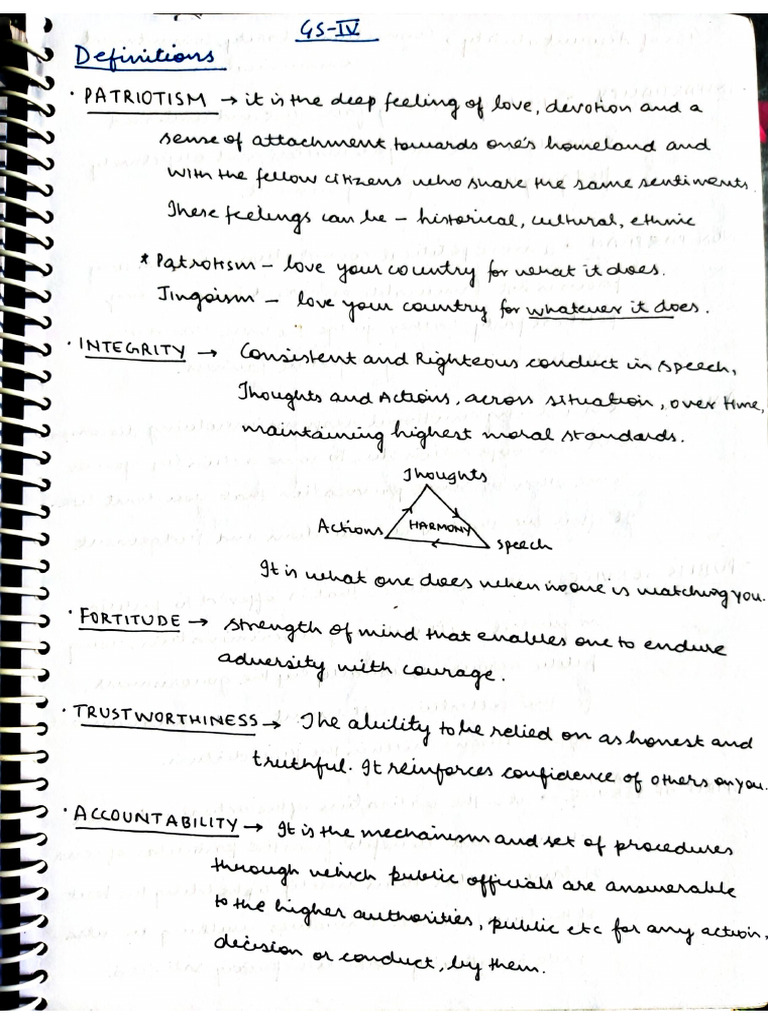 GS-IV
Definitions
· PATRIOTISM → it is the deep feeling of love, devotion and a
sense of attachment towards one's homeland and
with the fellow citizens who share the same sentiments.
These feelings can be – historical, cultural, ethnic
* Patriotism – love your country for what it does.
Jingoism – love your country for whatever it does.
· INTEGRITY → Consistent and Righteous conduct in speech,
Thoughts and Actions, across situation, over time,
maintaining highest moral standards.
Thoughts
Actions HARMONY
speech
It is what one does when no one is watching you.
· FORTITUDE → strength of mind that enables one to endure
adversity with courage.
· TRUSTWORTHINESS → The ability to be relied on as honest and
truthful. It reinforces confidence of others on you.
· ACCOUNTABILITY → It is the mechanism and set of procedures
through which public officials are answerable
to the higher authorities, public etc for any action,
decision or conduct, by them.